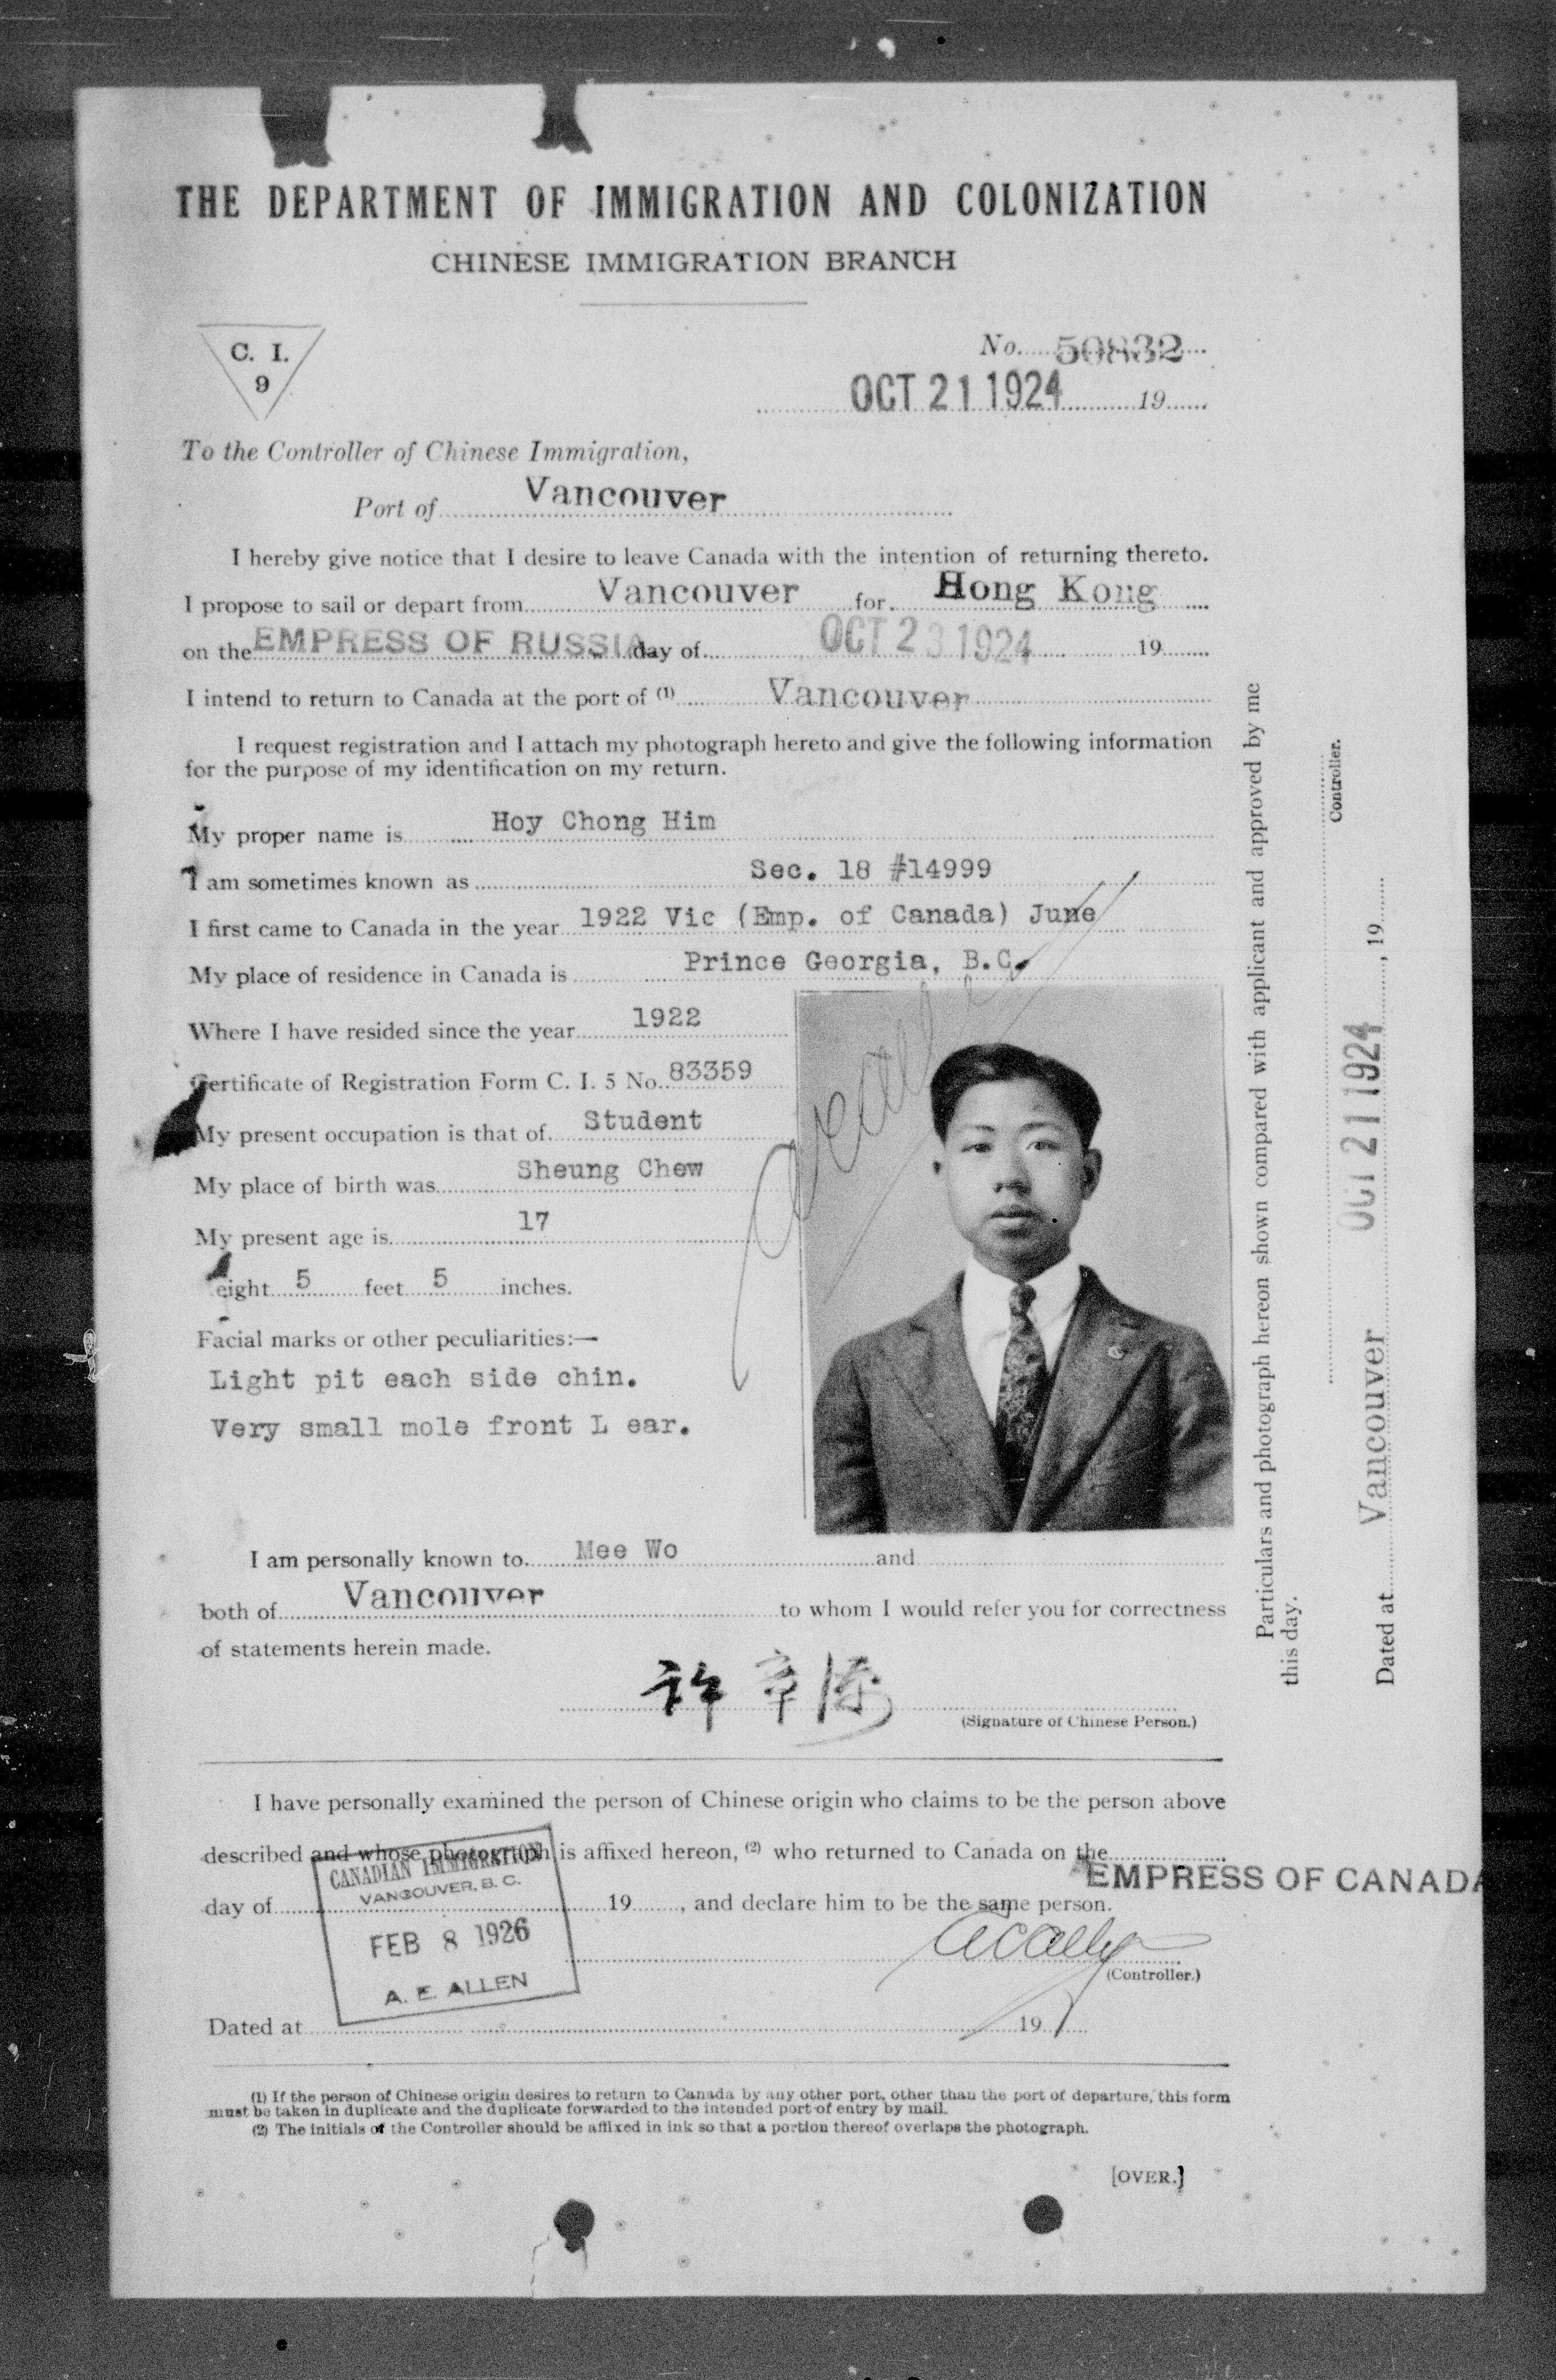 THE DEPARTMENT OF IMMIGRATION AND COLONIZATION
CHINESE IMMIGRATION BRANCH
C. I.
9
No. 50832
OCT 21 1924 19
To the Controller of Chinese Immigration,
Port of Vancouver
I hereby give notice that I desire to leave Canada with the intention of returning thereto.
I propose to sail or depart from Vancouver for Hong Kong
on the EMPRESS OF RUSSIA day of OCT 23 1924 19
I intend to return to Canada at the port of (1) Vancouver
I request registration and I attach my photograph hereto and give the following information
for the purpose of my identification on my return.
My proper name is Hoy Chong Him
I am sometimes known as Sec. 18 #14999
I first came to Canada in the year 1922 Vic (Emp. of Canada) June
My place of residence in Canada is Prince Georgia, B.C.
Where I have resided since the year 1922
Certificate of Registration Form C. I. 5 No. 83359
My present occupation is that of Student
My place of birth was Sheung Chew
My present age is 17
eight 5 feet 5 inches.
Facial marks or other peculiarities:—
Light pit each side chin.
Very small mole front L ear.
I am personally known to Mee Wo and
both of Vancouver to whom I would refer you for correctness
of statements herein made.
許章
(Signature of Chinese Person.)
I have personally examined the person of Chinese origin who claims to be the person above
described and whose photograph is affixed hereon, (2) who returned to Canada on the
EMPRESS OF CANADA
day of 19 , and declare him to be the same person.
CANADIAN IMMIGRATION
VANCOUVER, B. C.
FEB 8 1926
A. E. ALLEN
(Controller.)
Dated at 19
(1) If the person of Chinese origin desires to return to Canada by any other port, other than the port of departure, this form
must be taken in duplicate and the duplicate forwarded to the intended port of entry by mail.
(2) The initials of the Controller should be affixed in ink so that a portion thereof overlaps the photograph.
[OVER.]
Particulars and photograph hereon shown compared with applicant and approved by me
this day.
Controller.
Dated at Vancouver OCT 21 1924 , 19